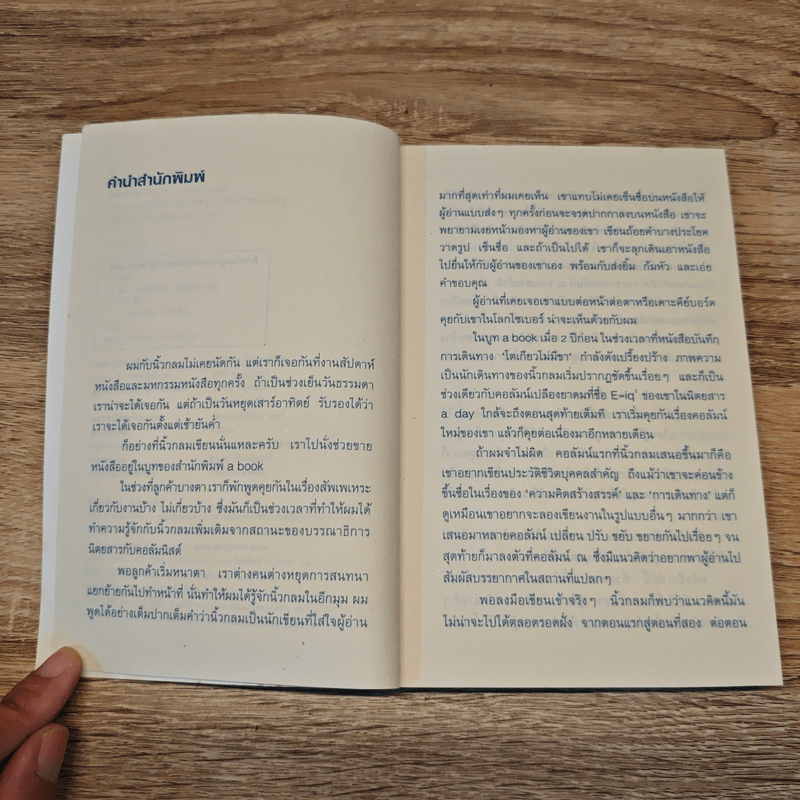 คำนำสำนักพิมพ์
ผมกับนิ้วกลมไม่เคยนัดกัน แต่เราก็เจอกันที่งานสัปดาห์
หนังสือและมหกรรมหนังสือทุกครั้ง ถ้าเป็นช่วงเย็นวันธรรมดา
เราน่าจะได้เจอกัน แต่ถ้าเป็นวันหยุดเสาร์อาทิตย์ รับรองได้ว่า
เราจะได้เจอกันตั้งแต่เช้ายันค่ำ
ก็อย่างที่นิ้วกลมเขียนนั่นแหละครับ เราไปนั่งช่วยขาย
หนังสืออยู่ในบูทของสำนักพิมพ์ a book
ในช่วงที่ลูกค้าบางตา เราก็พักพูดคุยกันในเรื่องสัพเพเหระ
เกี่ยวกับงานบ้าง ไม่เกี่ยวบ้าง ซึ่งมันก็เป็นช่วงเวลาที่ทำให้ผมได้
ทำความรู้จักกับนิ้วกลมเพิ่มเติมจากสถานะของบรรณาธิการ
นิตยสารกับคอลัมนิสต์
พอลูกค้าเริ่มหนาตา เราต่างคนต่างหยุดการสนทนา
แยกย้ายกันไปทำหน้าที่ นั่นทำให้ผมได้รู้จักนิ้วกลมในอีกมุม ผม
พูดได้อย่างเต็มปากเต็มคำว่านิ้วกลมเป็นนักเขียนที่ใส่ใจผู้อ่าน
มากที่สุดเท่าที่ผมเคยเห็น เขาแทบไม่เคยเซ็นชื่อบนหนังสือให้
ผู้อ่านแบบส่งๆ ทุกครั้งก่อนจะจรดปากกาลงบนหนังสือ เขาจะ
พยายามเงยหน้ามองหาผู้อ่านของเขา เขียนถ้อยคำบางประโยค
วาดรูป เซ็นชื่อ และถ้าเป็นไปได้ เขาก็จะลุกเดินเอาหนังสือ
ไปยื่นให้กับผู้อ่านของเขาเอง พร้อมกับส่งยิ้ม ก้มหัว และเอ่ย
คำขอบคุณ
ผู้อ่านที่เคยเจอเขาแบบต่อหน้าต่อตาหรือเคาะคีย์บอร์ด
คุยกับเขาในโลกไซเบอร์ น่าจะเห็นด้วยกับผม
ในบูท a book เมื่อ 2 ปีก่อน ในช่วงเวลาที่หนังสือบันทึก
การเดินทาง ‘โตเกียวไม่มีขา’ กำลังดังเปรี้ยงปร้าง ภาพความ
เป็นนักเดินทางของนิ้วกลมเริ่มปรากฏชัดขึ้นเรื่อยๆ และก็เป็น
ช่วงเดียวกับคอลัมน์เปลืองยาดมที่ชื่อ E=iq² ของเขาในนิตยสาร
a day ใกล้จะถึงตอนสุดท้ายเต็มที เราเริ่มคุยกันเรื่องคอลัมน์
ใหม่ของเขา แล้วก็คุยต่อเนื่องมาอีกหลายเดือน
ถ้าผมจำไม่ผิด คอลัมน์แรกที่นิ้วกลมเสนอขึ้นมาก็คือ
เขาอยากเขียนประวัติชีวิตบุคคลสำคัญ ถึงแม้ว่าเขาจะค่อนข้าง
ขึ้นชื่อในเรื่องของ ‘ความคิดสร้างสรรค์’ และ ‘การเดินทาง’ แต่ก็
ดูเหมือนเขาอยากจะลองเขียนงานในรูปแบบอื่นๆ มากกว่า เขา
เสนอมาหลายคอลัมน์ เปลี่ยน ปรับ ขยับ ขยายกันไปเรื่อยๆ จน
สุดท้ายก็มาลงตัวที่คอลัมน์ ณ ซึ่งมีแนวคิดว่าอยากพาผู้อ่านไป
สัมผัสบรรยากาศในสถานที่แปลกๆ
พอลงมือเขียนเข้าจริงๆ นิ้วกลมก็พบว่าแนวคิดนี้มัน
ไม่น่าจะไปได้ตลอดรอดฝั่ง จากตอนแรกสู่ตอนที่สอง ต่อตอน